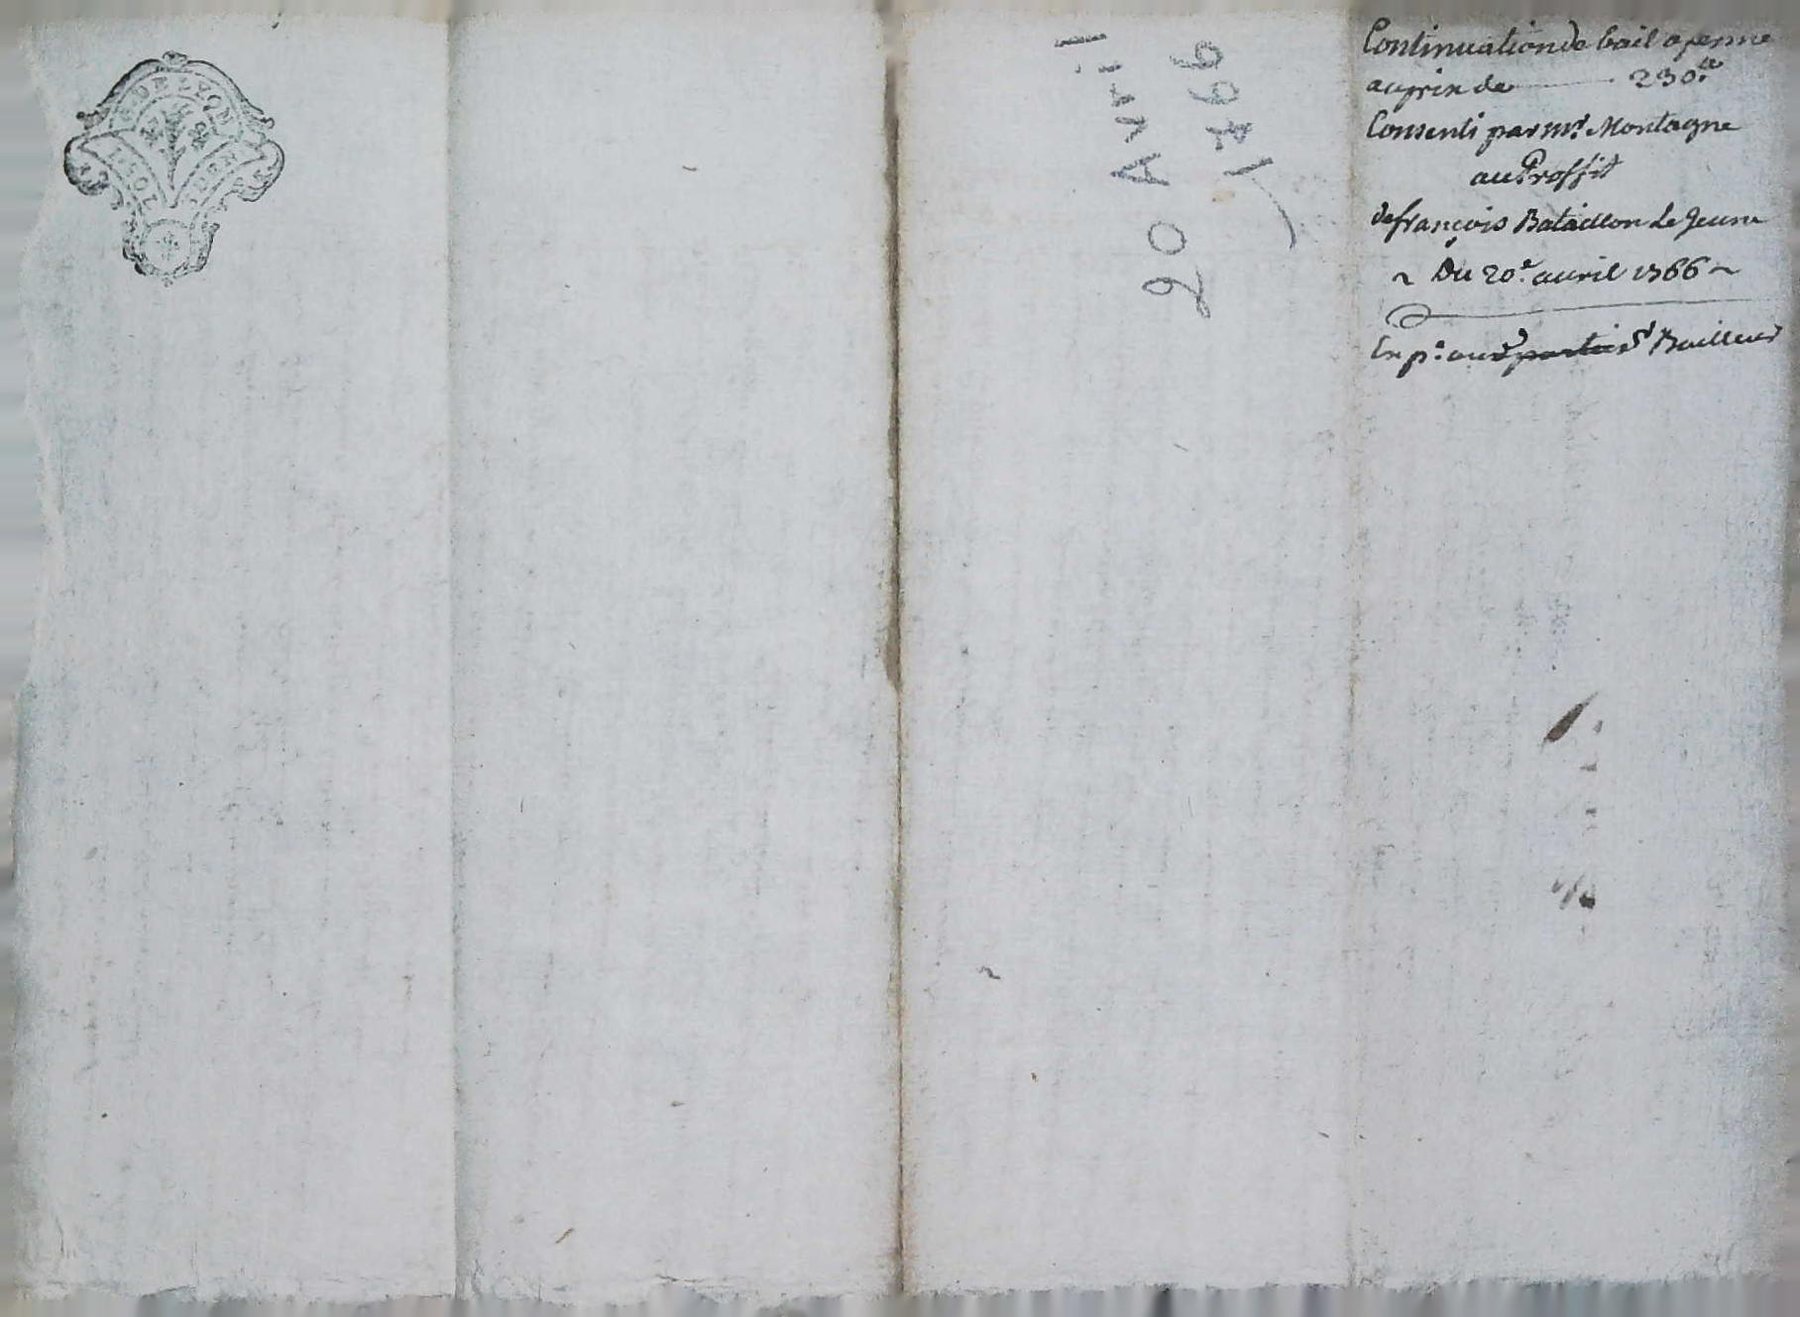 G. DE LYON
2 SOLS 8 DEN
20 Avril
1766
Continuation de bail a ferme
au prix de 230.ᵗᵗ
Consenti par mʳ. Montagne
au Proffit
de françois Bataillon Le Jeune
~ Du 20.ᵉ avril 1766 ~
Exp.ᵉ aud. parties Bailleur